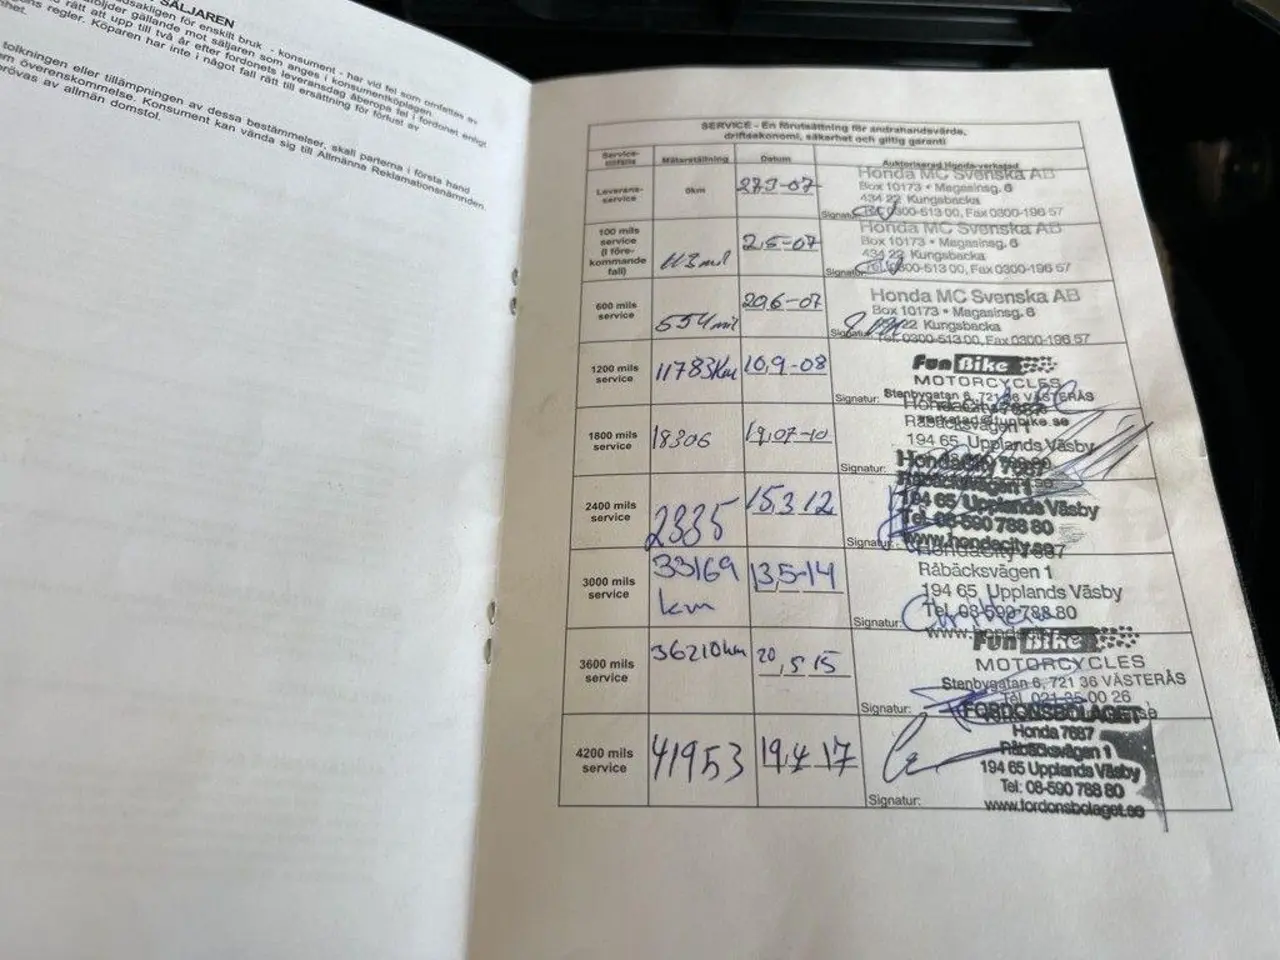 SÄLJAREN
rätt att upp till två år efter fordonets leveransdag åberopa fel i fordonet enligt
regler. Köparen har inte i något fall rätt till ersättning för förlust av
tolkningen eller tillämpningen av dessa bestämmelser, skall parterna i första hand
överenskommelse. Konsument kan vända sig till Allmänna Reklamationsnämnden
prövas av allmän domstol.
SERVICE - En förutsättning för andrahandsvärde,
driftsekonomi, säkerhet och giltig garanti
Mätarställning Datum Auktoriserad Honda-verkstad
Leverans-
service
0km
27.3-07
Honda MC Svenska AB
Box 10173 • Magasinsg. 6
434 22 Kungsbacka
Signatur: 0300-513 00, Fax 0300-196 57
100 mils
service
(i före-
kommande
fall)
113 mil
2.5-07
Honda MC Svenska AB
Box 10173 • Magasinsg. 6
434 22 Kungsbacka
Signatur: 0300-513 00, Fax 0300-196 57
600 mils
service
554 mil
20.6-07
Honda MC Svenska AB
Box 10173 • Magasinsg. 6
22 Kungsbacka
Tel. 0300-513 00, Fax 0300-196 57
1200 mils
service
11783Km
10.9-08
Fun Bike
MOTORCYCLES
Signatur: Stenbygatan 6, 721 36 VÄSTERÅS
1800 mils
service
18306
19.07-10
Råbäcksvägen 1
194 65 Upplands Väsby
Signatur:
HondaCity 7887
2400 mils
service
2335
15.3 12
Råbäcksvägen 1
194 65 Upplands Väsby
Tel. 08-590 788 80
www.hondacity.se
Signatur:
3000 mils
service
33169
km
13.5-14
Råbäcksvägen 1
194 65 Upplands Väsby
Tel. 08-590 788 80
Signatur:
3600 mils
service
36210km
20.5 15
Fun Bike
MOTORCYCLES
Stenbygatan 6, 721 36 VÄSTERÅS
Tel. 021-35 00 26
Signatur:
4200 mils
service
41953
19.4 17
FORDONSBOLAGET
Honda 7687
Råbäcksvägen 1
194 65 Upplands Väsby
Tel: 08-590 788 80
www.fordonsbolaget.se
Signatur: